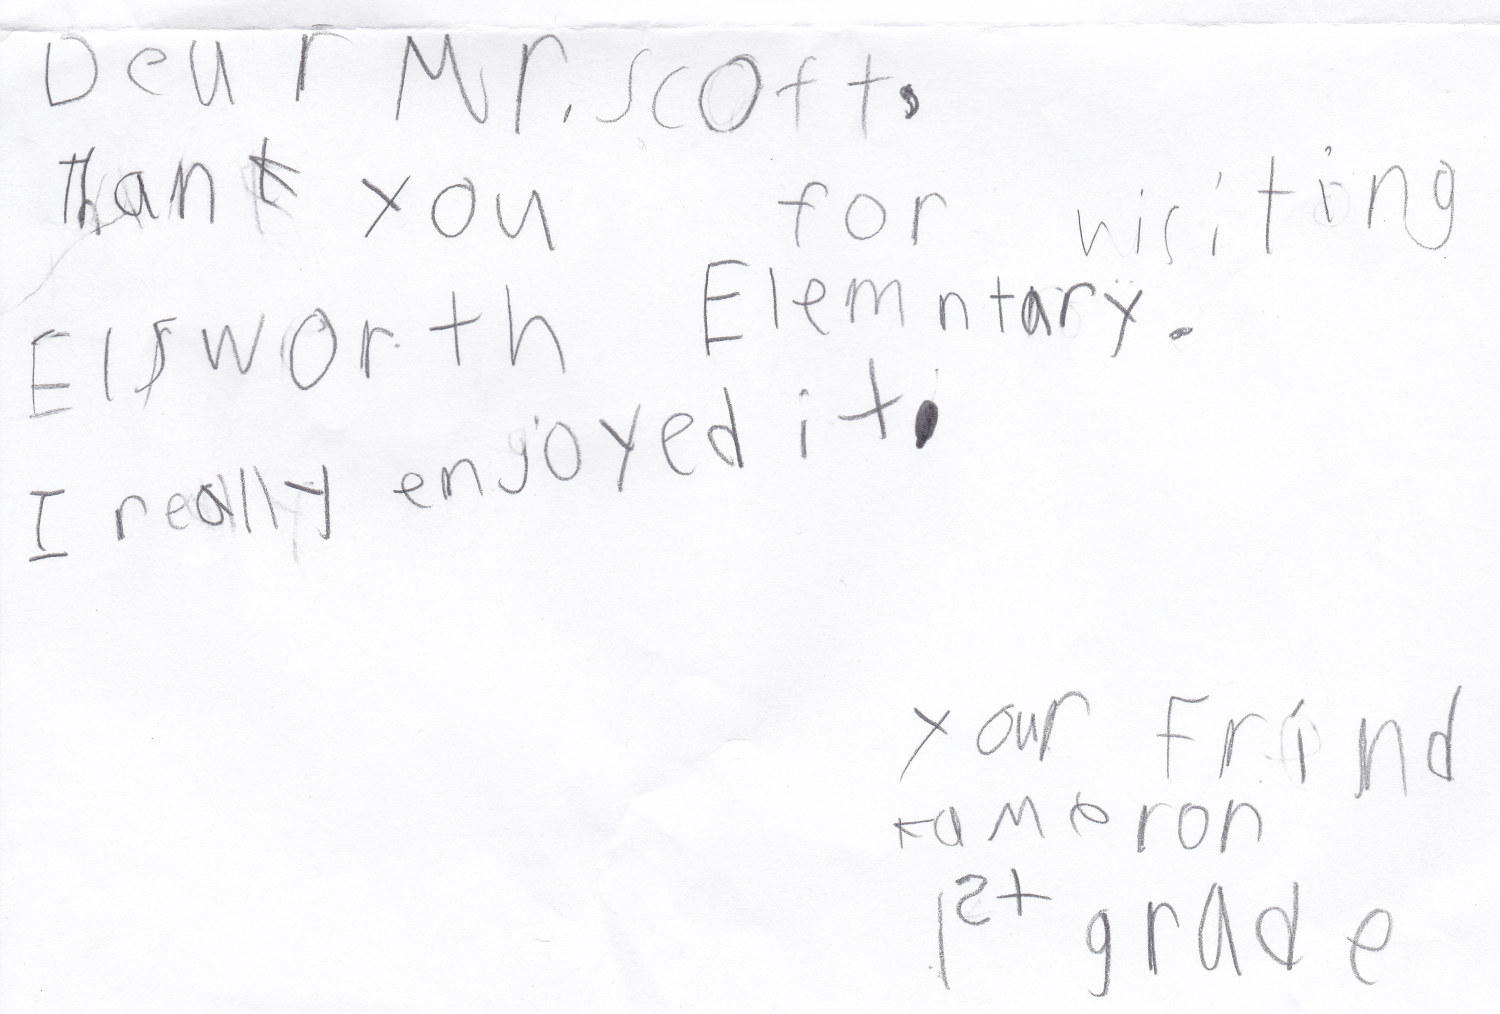 Dear Mr. Scott,
Thank you for visiting
Elsworth Elemntary.
I really enjoyed it.
your Frind
Kameron
1st grade